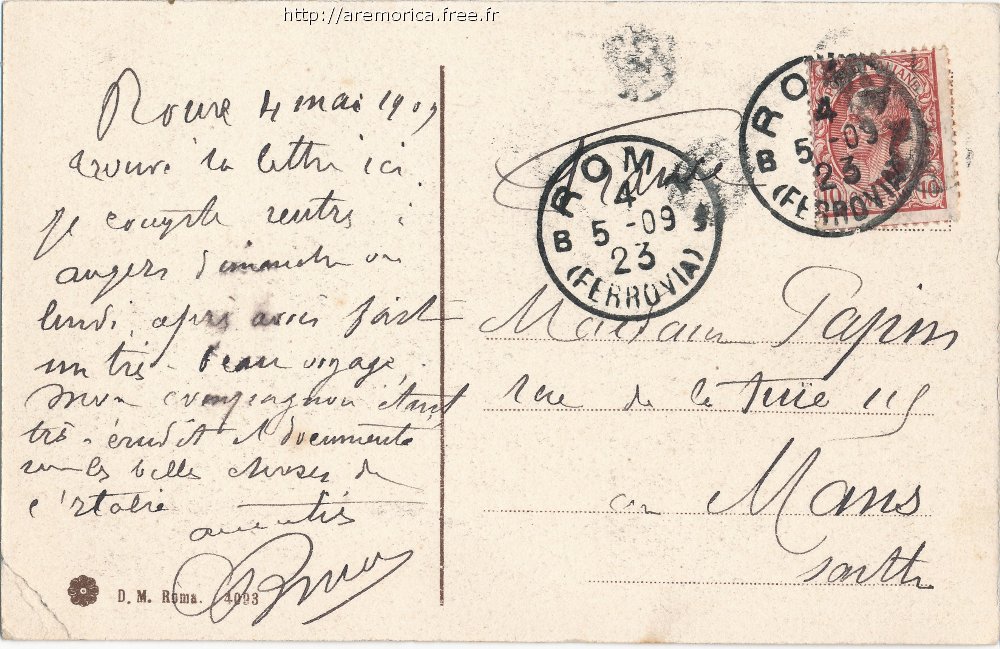 http://aremorica.free.fr
Rome 4 mai 1909
trouvé ta lettre ici
je compte rentrer à
angers dimanche ou
lundi, après avoir fait
un très beau voyage,
mon compagnon étant
très érudit et documenté
sur les belles choses de
l'Italie
amitiés
D. M. Roma. 4093
France
B ROMA
4
5 -09
23
(FERROVIA)
B ROMA
4
5 -09
23
(FERROVIA)
10 10
Madame Papin
rue de la 115
au Mans
Sarthe